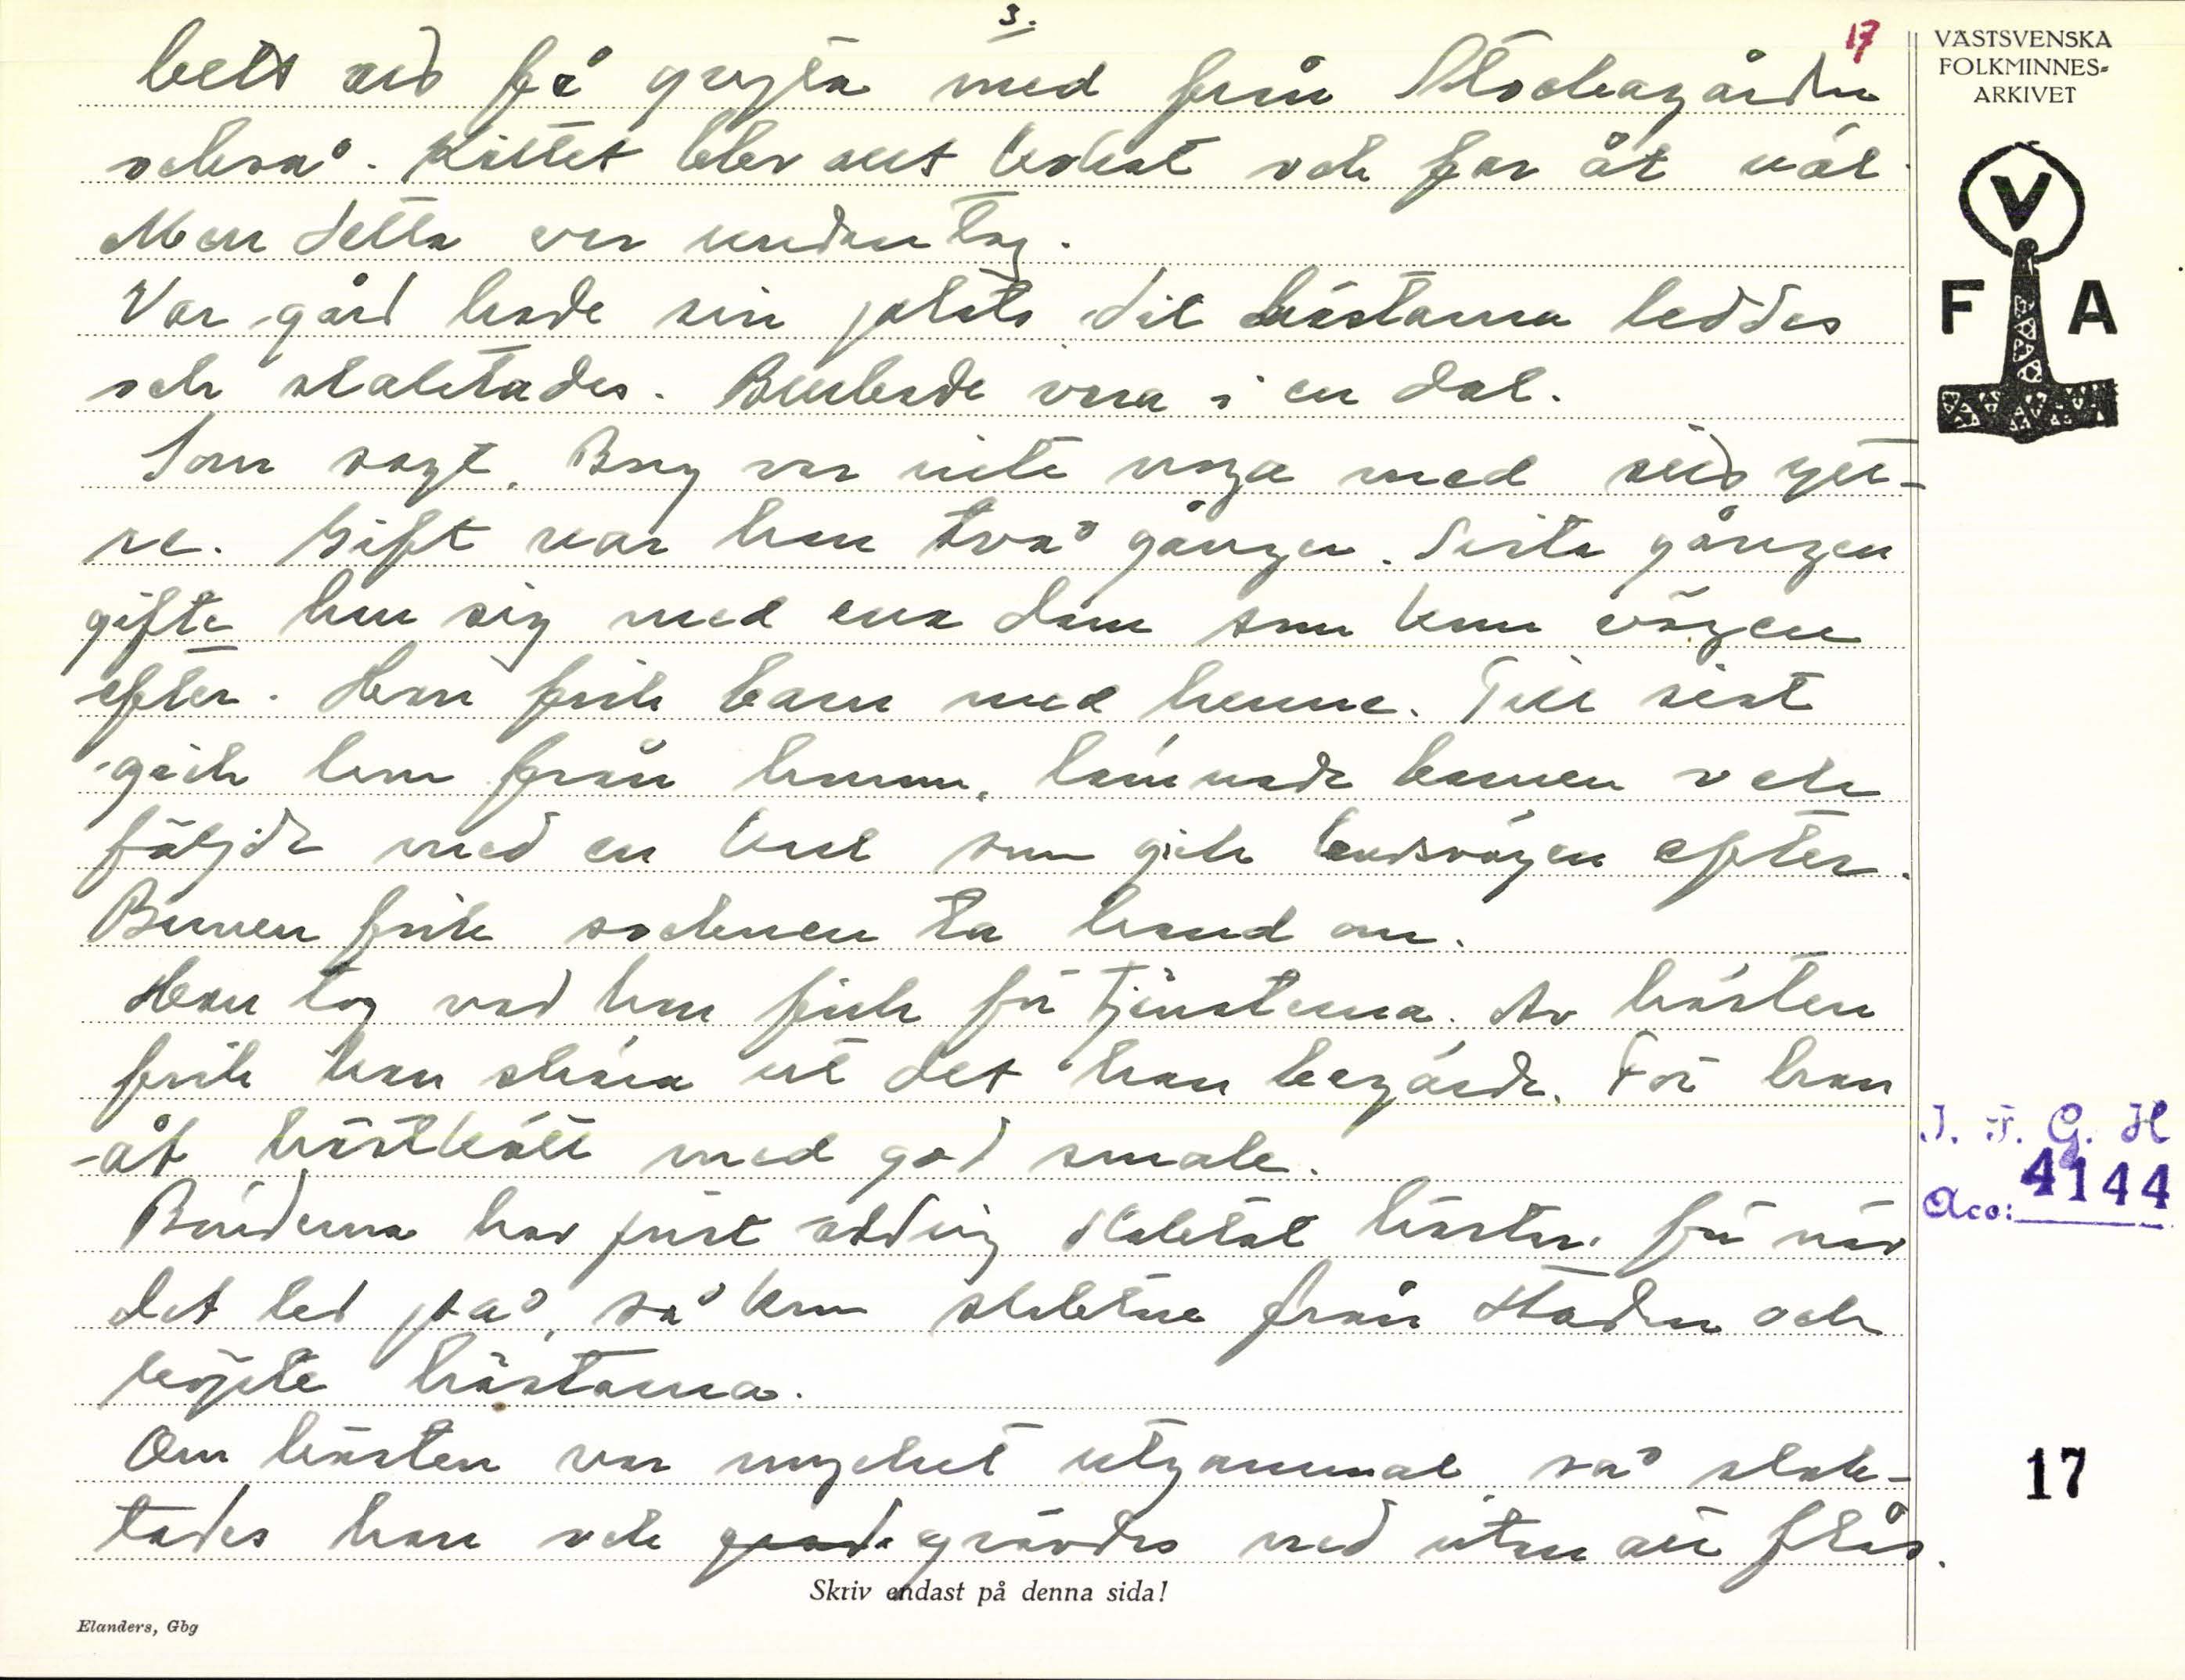 3.
17
bett att få gryta med från Stockagården
också. Köttet blev ett kokat och far åt väl.
Men detta var undantag.
Var gård hade sin plats dit hästarna leddes
och slaktades. Bukade vara i en dal.
Som sagt, Borg var inte noga med sitt ytt-
re. Gift var han två gånger. Sista gången
gifte han sig med ena dam som kom vägen
efter. Han fick barn med henne. Till sist
gick hon från honom, lämnade barnen och
följde med en karl som gick landsvägen efter.
Barnen fick socknen ta hand om.
Han tog vad han fick för tjänsterna. Av hästen
fick han skära ut det han begärde. För han
åt hästkött med god smak.
Bönderna har just aldrig slaktat hästar, för när
det led på, så kom slaktare från staden och
köpte hästarna.
Om hästen var mycket utgammal så slak-
tades han och grävdes ned utan att flås.
Skriv endast på denna sida!
Elanders, Gbg
VÄSTSVENSKA
FOLKMINNES-
ARKIVET
V
F A
I. F. G. H
Acc: 4144
17